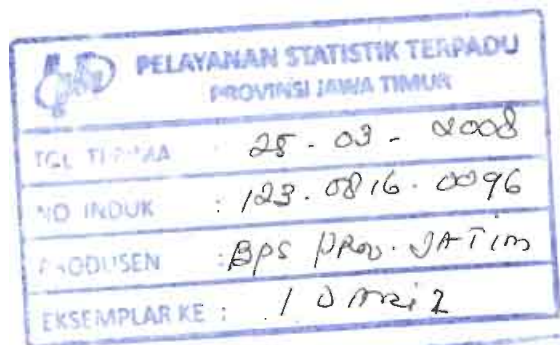 PELAYANAN STATISTIK TERPADU
PROVINSI JAWA TIMUR
TGL TERIMA : 25 - 03 - 2008
NO INDUK : 123.0816.0096
PRODUSEN : BPS PROV. JATIM
EKSEMPLAR KE : 1 DARI 2